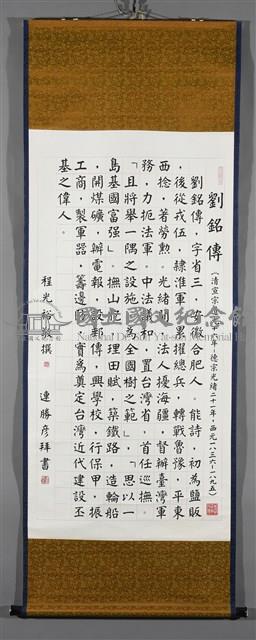 劉銘傳
（清宣宗道光十六年－德宗光緒二十二年，西元一八三六－一八九五）
劉銘傳，字省三，安徽合肥人。能詩，初為鹽販
，後從戎伍，隸淮軍，累擢總兵，轉戰魯豫，平東
西捻，著勞勩。光緒間，法人擾海疆，督辦臺灣軍
務，力扼法軍。中法議和，置台灣省，首任巡撫。
「且將舉一隅之設施，為全國樹之範」，「思以一
島基國富強」。撫山立，理田賦，築鐵路，造輪船
，開煤礦，辦電報，設郵傳，興學校，行保甲，振
工商，製軍器，籌邊防，實為奠定台灣近代建設丕
基之偉人。
程光裕敬撰
連勝彥拜書
國立國父紀念館
National Dr. Sun Yat-sen Memorial Hall